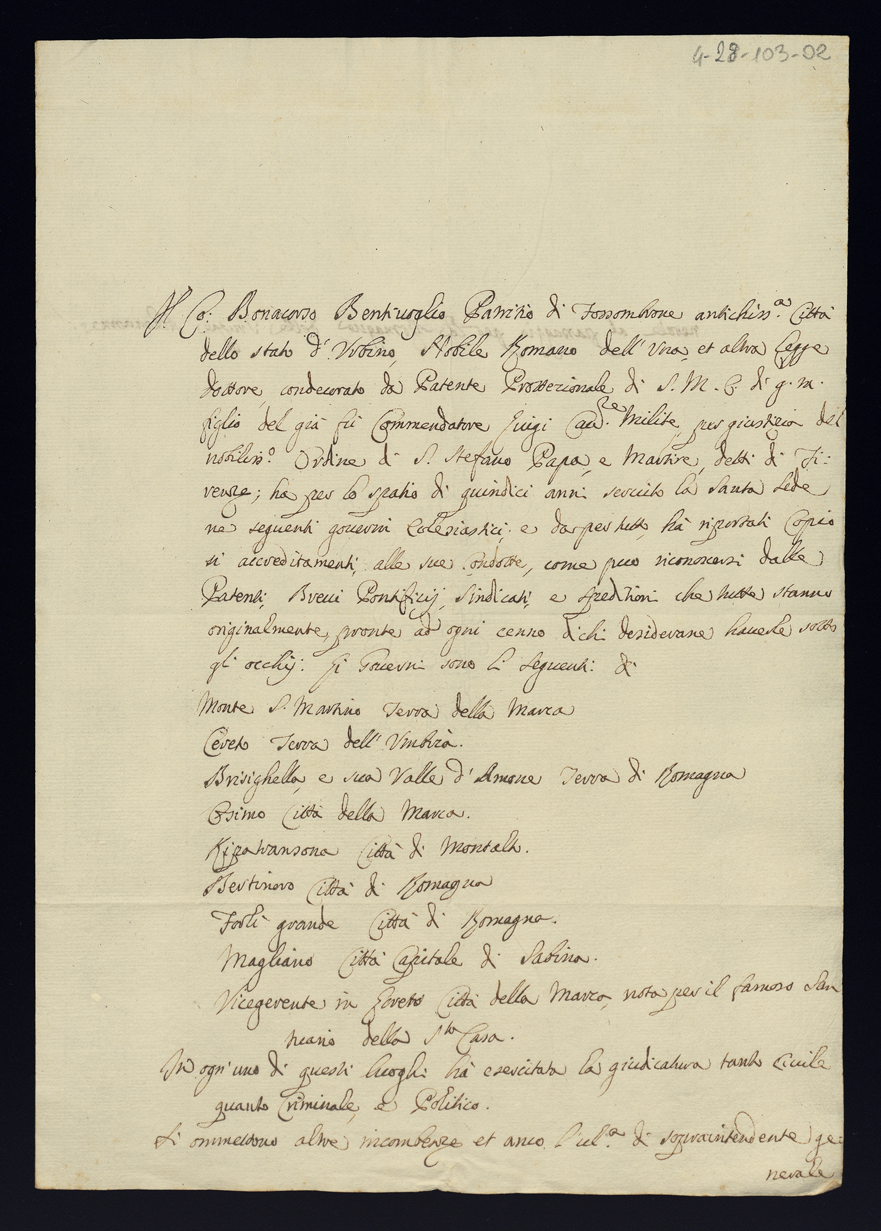 4-28-103-02
Il Co: Bonacorso Bentivoglio Patritio di Fossombrone antichiss.ᵃ Città
dello stato d'Urbino, Nobile Romano dell'Una et altra Legge
Dottore, condecorato da Patente Protezionale di S. M. C. di g. m.
figlio del già fù Commendatore Luigi Cau.ʳᵉ Milite, per giustizia del
nobiliss.º Ordine di S. Stefano Papa, e Martire, detti di Fi:
renze; ha per lo spatio di quindici anni seruito la Santa Sede
ne seguenti gouerni Eclesiastici; e da per tutto hà riportati Copio
si accreditamenti, alle sue Condotte, come può riconoscersi dalle
Patenti, Breui Pontificij, Sindicati, e Speditioni che tutte stanno
originalmente, pronte ad ogni cenno di chi desiderane hauerle sotto
gli occhij: Li Gouerni sono li seguenti: di
Monte S. Martino Terra della Marca
Cereto Terra dell'Umbria.
Brisighella, e sua Valle d'Amone Terra di Romagna
Osimo Città della Marca.
Ripatransona Città di Montalto.
Bertinoro Città di Romagna
Forlì grande Città di Romagna.
Magliano Città Capitale di Sabina.
Vicegerente in Loreto Città della Marca, nota per il famoso San
tuario della S.ᵗᵃ Casa.
In ogn'uno di questi luoghi hà esercitata la giudicatura tanto Ciuile
quanto Criminale, e Politico.
Si ommettono altre incombenze et anco l'ult.ᵃ di sopraintendente ge:
nerale